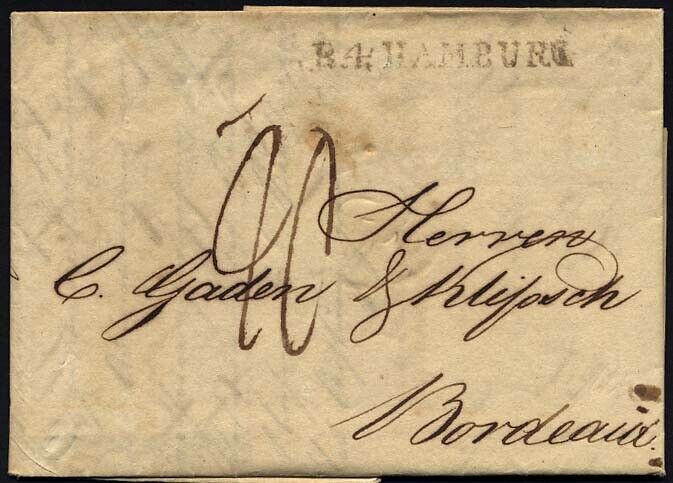 R.4: HAMBURG
Herren
C. Gaden & Klipsch
Bordeaux.